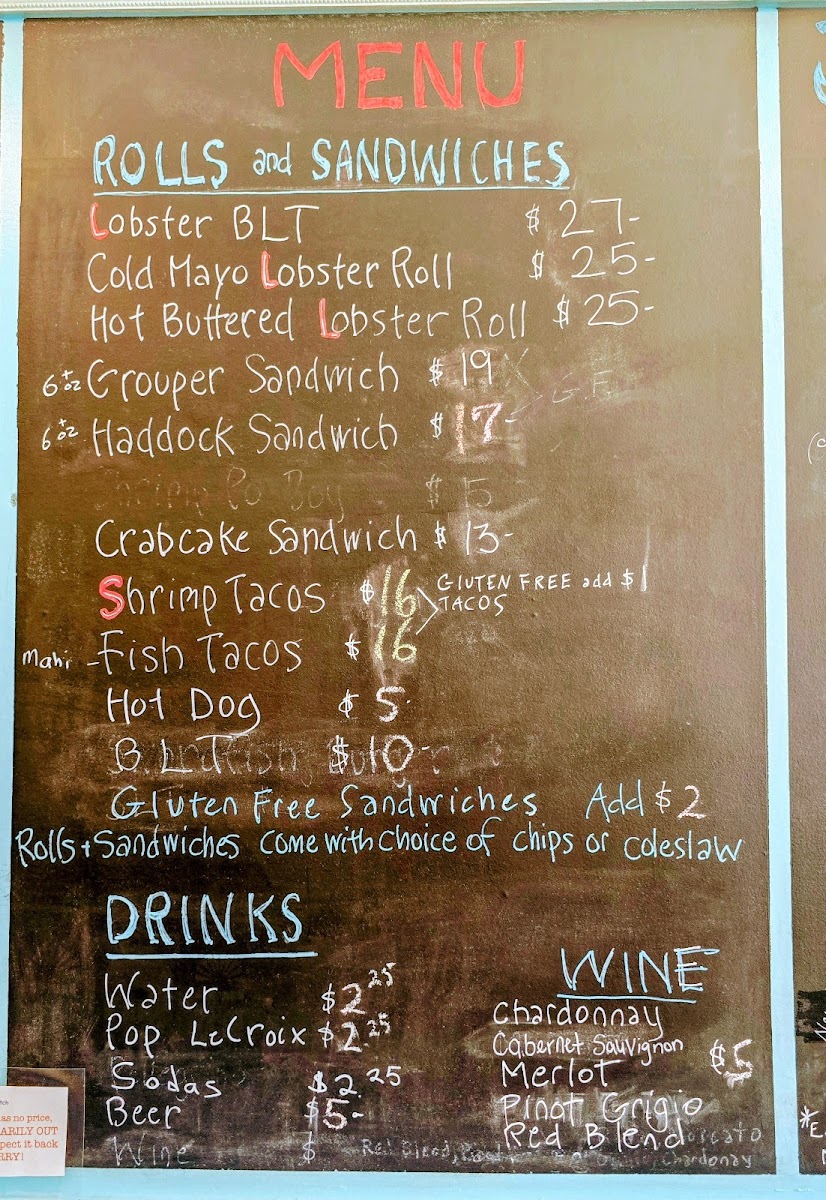 MENU
ROLLS and SANDWICHES
Lobster BLT $27-
Cold Mayo Lobster Roll $25-
Hot Buttered Lobster Roll $25-
6+oz Grouper Sandwich $19
G.F.
6+oz Haddock Sandwich $17-
Shrimp Po Boy $15
Crabcake Sandwich $13-
Shrimp Tacos $16 GLUTEN FREE add $1
TACOS
Mahi - Fish Tacos $16
Hot Dog $5
BLT $10-
Gluten Free Sandwiches Add $2
Rolls + Sandwiches come with choice of chips or coleslaw
DRINKS
Water $2.25
Pop LeCroix $2.25
Sodas $2.25
Beer $5-
Wine $
WINE
Chardonnay
Cabernet Sauvignon
Merlot $5
Pinot Grigio
Red Blend
Red Blend, Chardonay
as no price,
ARILY OUT
pect it back
RRY!